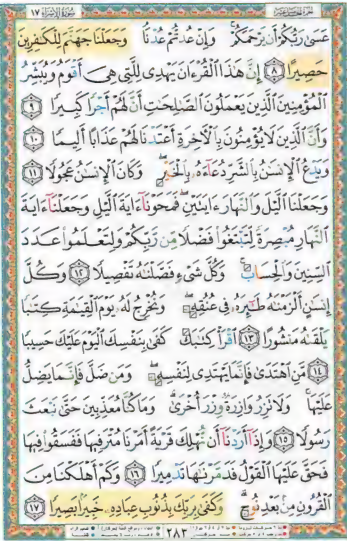 سورة الإسراء ١٧
عَسَىٰ رَبُّكُمْ أَن يَرْحَمَكُمْ وَإِنْ عُدتُّمْ عُدْنَا وَجَعَلْنَا جَهَنَّمَ لِلْكَٰفِرِينَ
حَصِيرًا ٨ إِنَّ هَٰذَا الْقُرْءَانَ يَهْدِى لِلَّتِى هِىَ أَقْوَمُ وَيُبَشِّرُ
الْمُؤْمِنِينَ الَّذِينَ يَعْمَلُونَ الصَّٰلِحَٰتِ أَنَّ لَهُمْ أَجْرًا كَبِيرًا ٩
وَأَنَّ الَّذِينَ لَا يُؤْمِنُونَ بِالْءَاخِرَةِ أَعْتَدْنَا لَهُمْ عَذَابًا أَلِيمًا ١٠
وَيَدْعُ الْإِنسَٰنُ بِالشَّرِّ دُعَآءَهُۥ بِالْخَيْرِ وَكَانَ الْإِنسَٰنُ عَجُولًا ١١
وَجَعَلْنَا الَّيْلَ وَالنَّهَارَ ءَايَتَيْنِ فَمَحَوْنَآ ءَايَةَ الَّيْلِ وَجَعَلْنَآ ءَايَةَ
النَّهَارِ مُبْصِرَةً لِّتَبْتَغُوا فَضْلًا مِّن رَّبِّكُمْ وَلِتَعْلَمُوا عَدَدَ
السِّنِينَ وَالْحِسَابَ وَكُلَّ شَىْءٍ فَصَّلْنَٰهُ تَفْصِيلًا ١٢ وَكُلَّ
إِنسَٰنٍ أَلْزَمْنَٰهُ طَٰٓئِرَهُۥ فِى عُنُقِهِۦ وَنُخْرِجُ لَهُۥ يَوْمَ الْقِيَٰمَةِ كِتَٰبًا
يَلْقَىٰهُ مَنشُورًا ١٣ اقْرَأْ كِتَٰبَكَ كَفَىٰ بِنَفْسِكَ الْيَوْمَ عَلَيْكَ حَسِيبًا
١٤ مَّنِ اهْتَدَىٰ فَإِنَّمَا يَهْتَدِى لِنَفْسِهِۦ وَمَن ضَلَّ فَإِنَّمَا يَضِلُّ
عَلَيْهَا وَلَا تَزِرُ وَازِرَةٌ وِزْرَ أُخْرَىٰ وَمَا كُنَّا مُعَذِّبِينَ حَتَّىٰ نَبْعَثَ
رَسُولًا ١٥ وَإِذَآ أَرَدْنَآ أَن نُّهْلِكَ قَرْيَةً أَمَرْنَا مُتْرَفِيهَا فَفَسَقُوا فِيهَا
فَحَقَّ عَلَيْهَا الْقَوْلُ فَدَمَّرْنَٰهَا تَدْمِيرًا ١٦ وَكَمْ أَهْلَكْنَا مِنَ
الْقُرُونِ مِنۢ بَعْدِ نُوحٍ وَكَفَىٰ بِرَبِّكَ بِذُنُوبِ عِبَادِهِۦ خَبِيرًۢا بَصِيرًا ١٧
٢٨٣